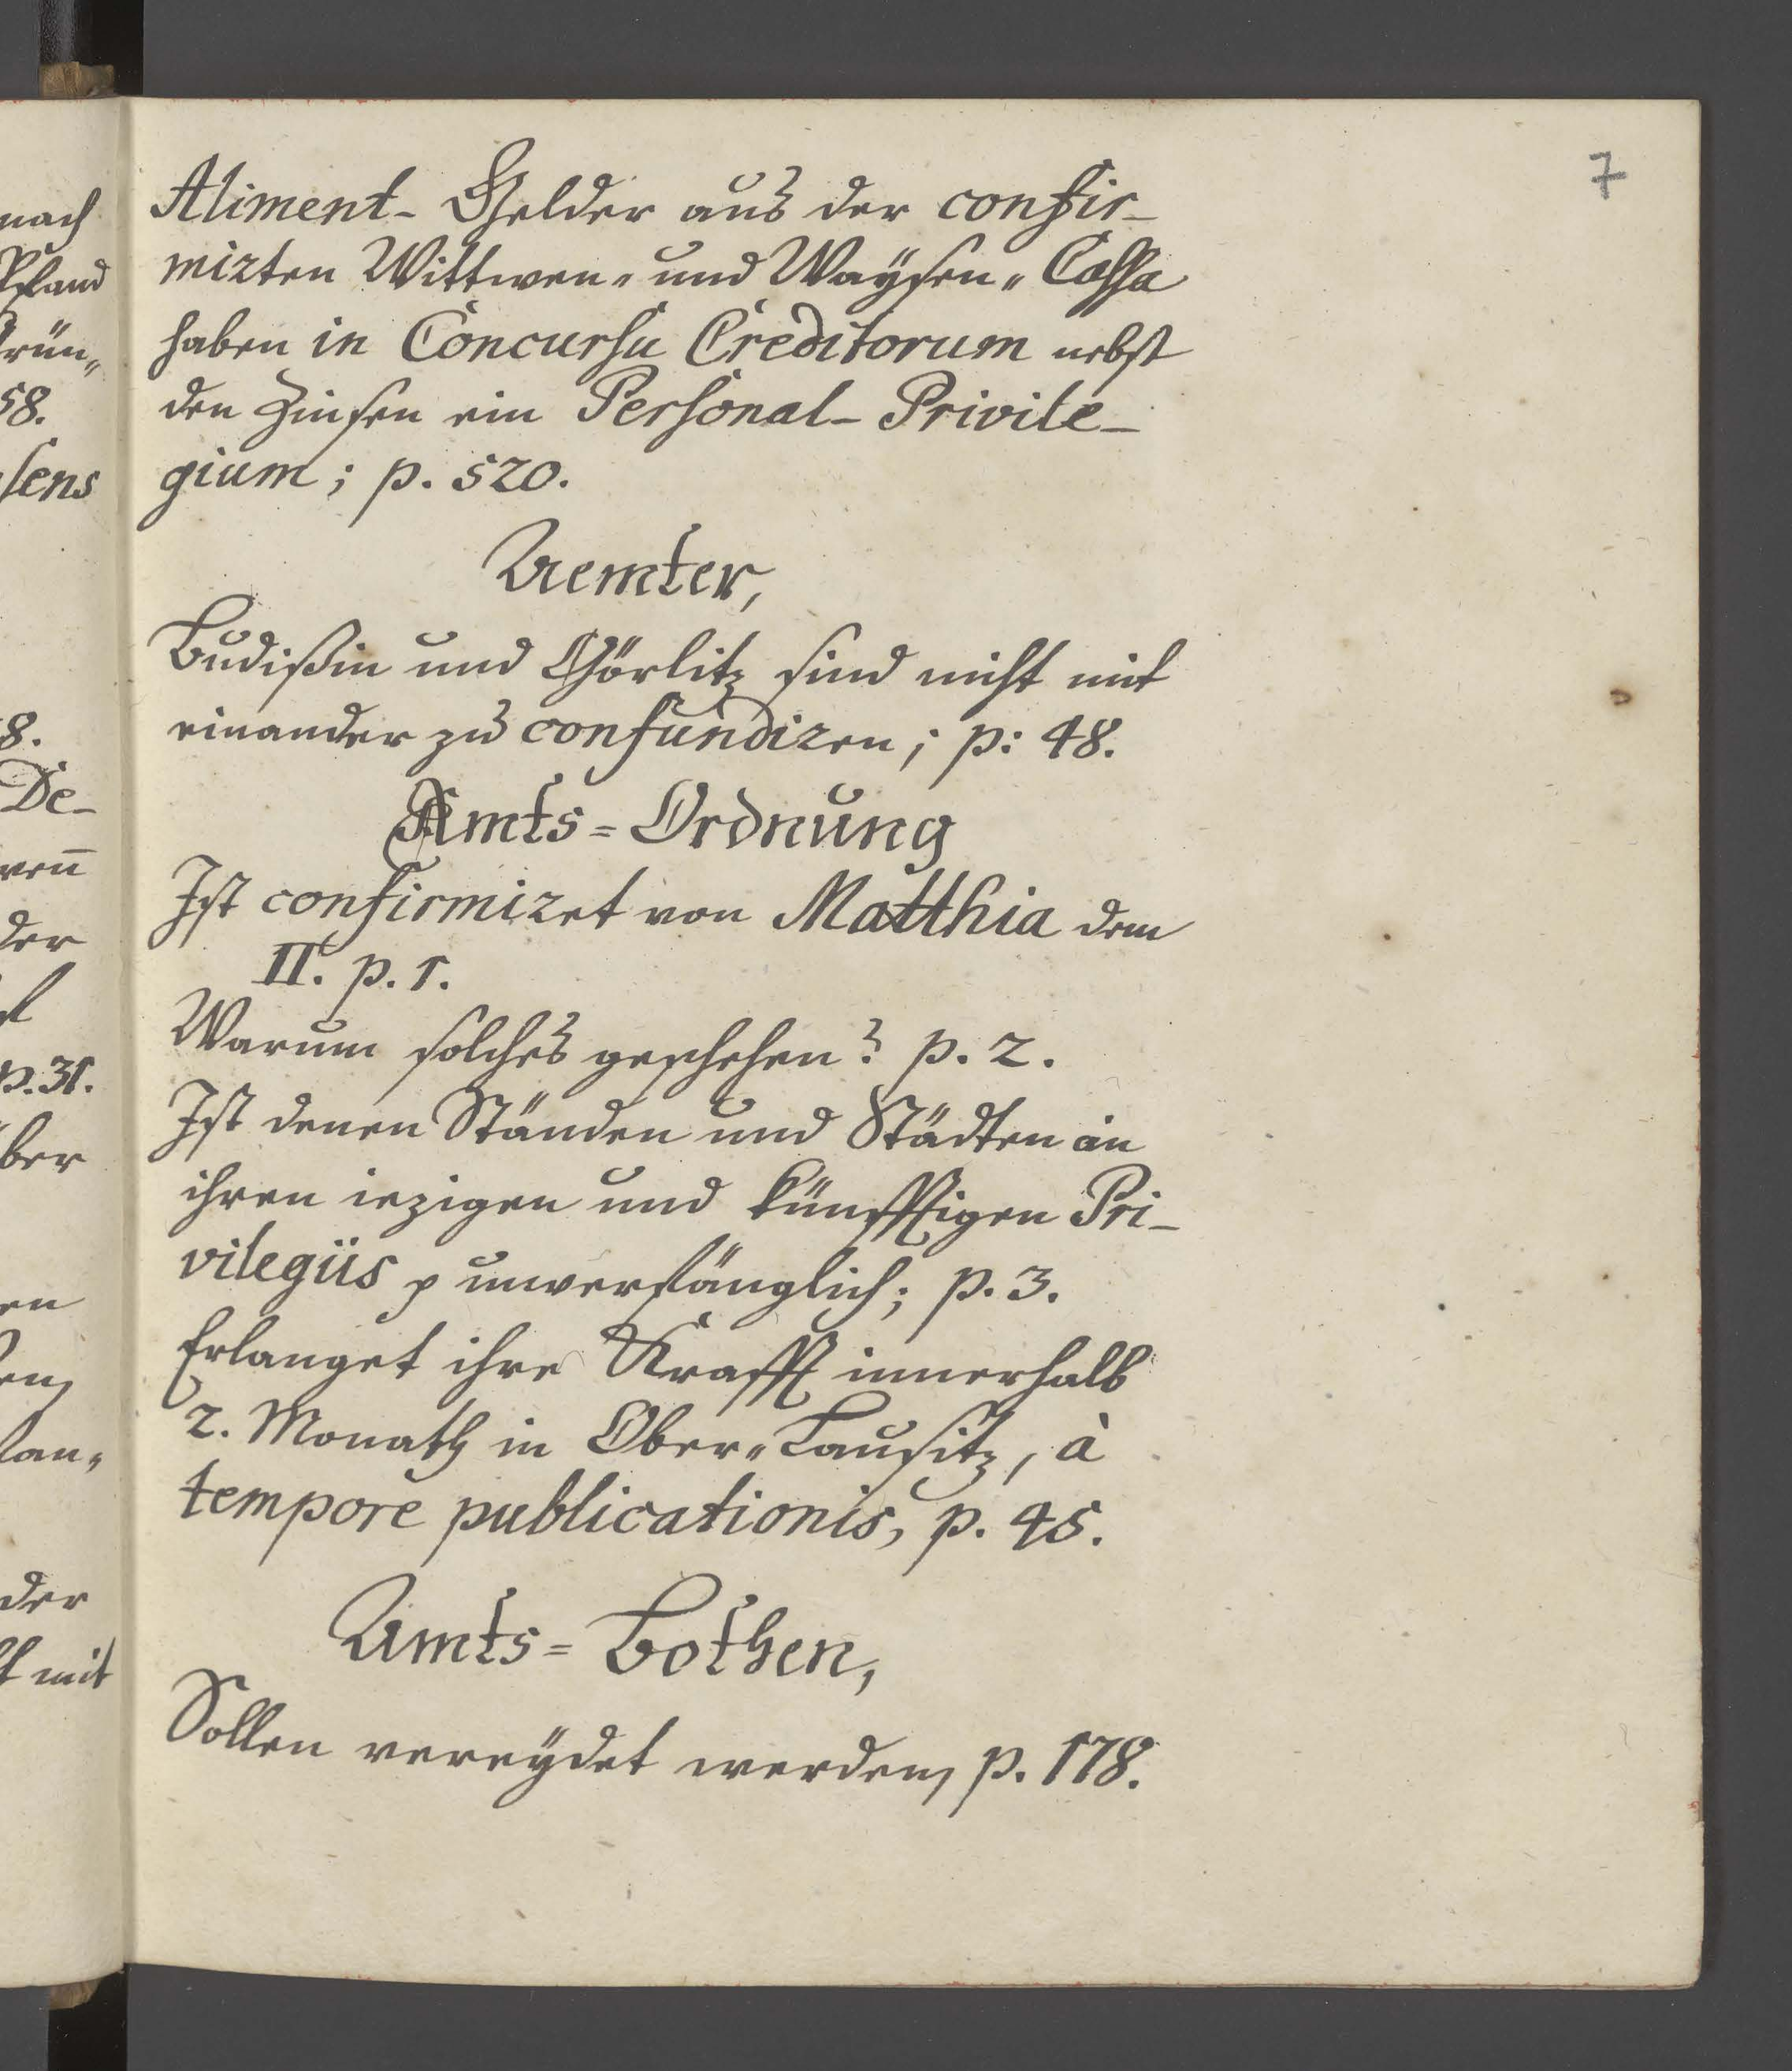 7
Aliment- Gelder aus der confir-
mirten Wittwen- und Waÿsen- Cassa
haben in Concursu Creditorum nebst
den Zinsen ein Personal- Privile-
gium; p. 520.
Aemter,
Budißin und Görlitz sind nicht mit
einander zu confundiren; p: 48.
Amts=Ordnung
Ist confirmiret von Matthia dem
II. p. 1.
Warum solches geschehen? p. 2.
Ist denen Ständen und Städten an
ihren iezigen und künfftigen Pri-
vilegiis p unverfänglich; p. 3.
Erlanget ihre Krafft innerhalb
2. Monath in Ober-Lausitz, à
tempore publicationis, p. 45.
Amts=Bothen,
Sollen vereÿdet werden, p. 178.
nach
Pfand
58.
sens
8.
De-
der
p. 31.
ber
en
der
mit